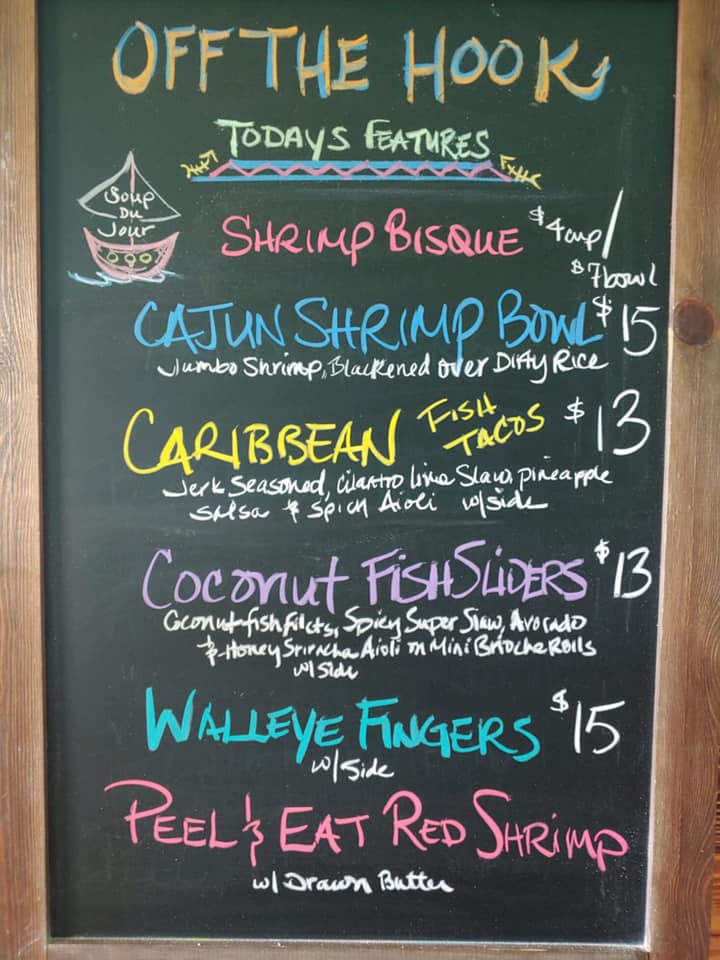 OFF THE HOOK
TODAYS FEATURES
Soup
Du
Jour
SHRIMP BISQUE $4cup/
$7bowl
CAJUN SHRIMP BOWL $15
Jumbo Shrimp, Blackened over Dirty Rice
CARIBBEAN FISH TACOS $13
Jerk Seasoned, cilantro lime Slaw, pineapple
salsa & Spicy Aioli w/side
Coconut FISH SLIDERS $13
Coconut fish filets, Spicy Super Slaw, Avocado
& Honey Sriracha Aioli on Mini Brioche Rolls
w/side
WALLEYE FINGERS $15
w/Side
PEEL & EAT RED SHRIMP
w/ Drawn Butter